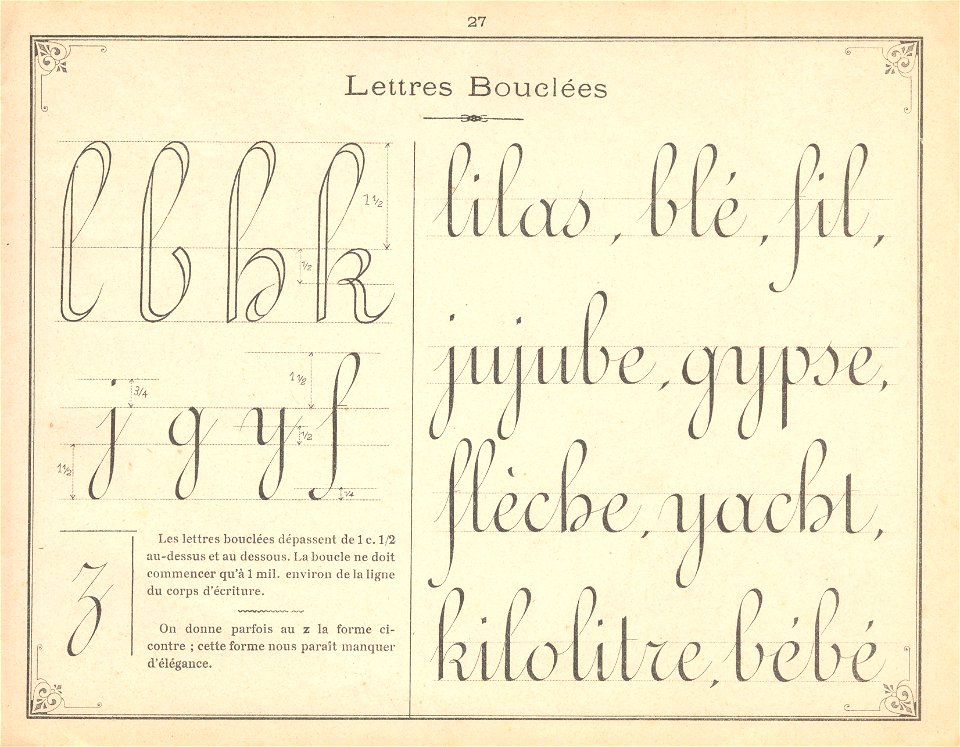 27
Lettres Bouclées
l b h k
1 1/2
1/2
j g y f
3/4
1 1/2
1 1/2
1/2
1/4
z
Les lettres bouclées dépassent de 1 c. 1/2
au-dessus et au dessous. La boucle ne doit
commencer qu'à 1 mil. environ de la ligne
du corps d'écriture.
On donne parfois au z la forme ci-
contre ; cette forme nous paraît manquer
d'élégance.
lilas, blé, fil,
jujube, gypse,
flèche, yacht,
kilolitre, bébé